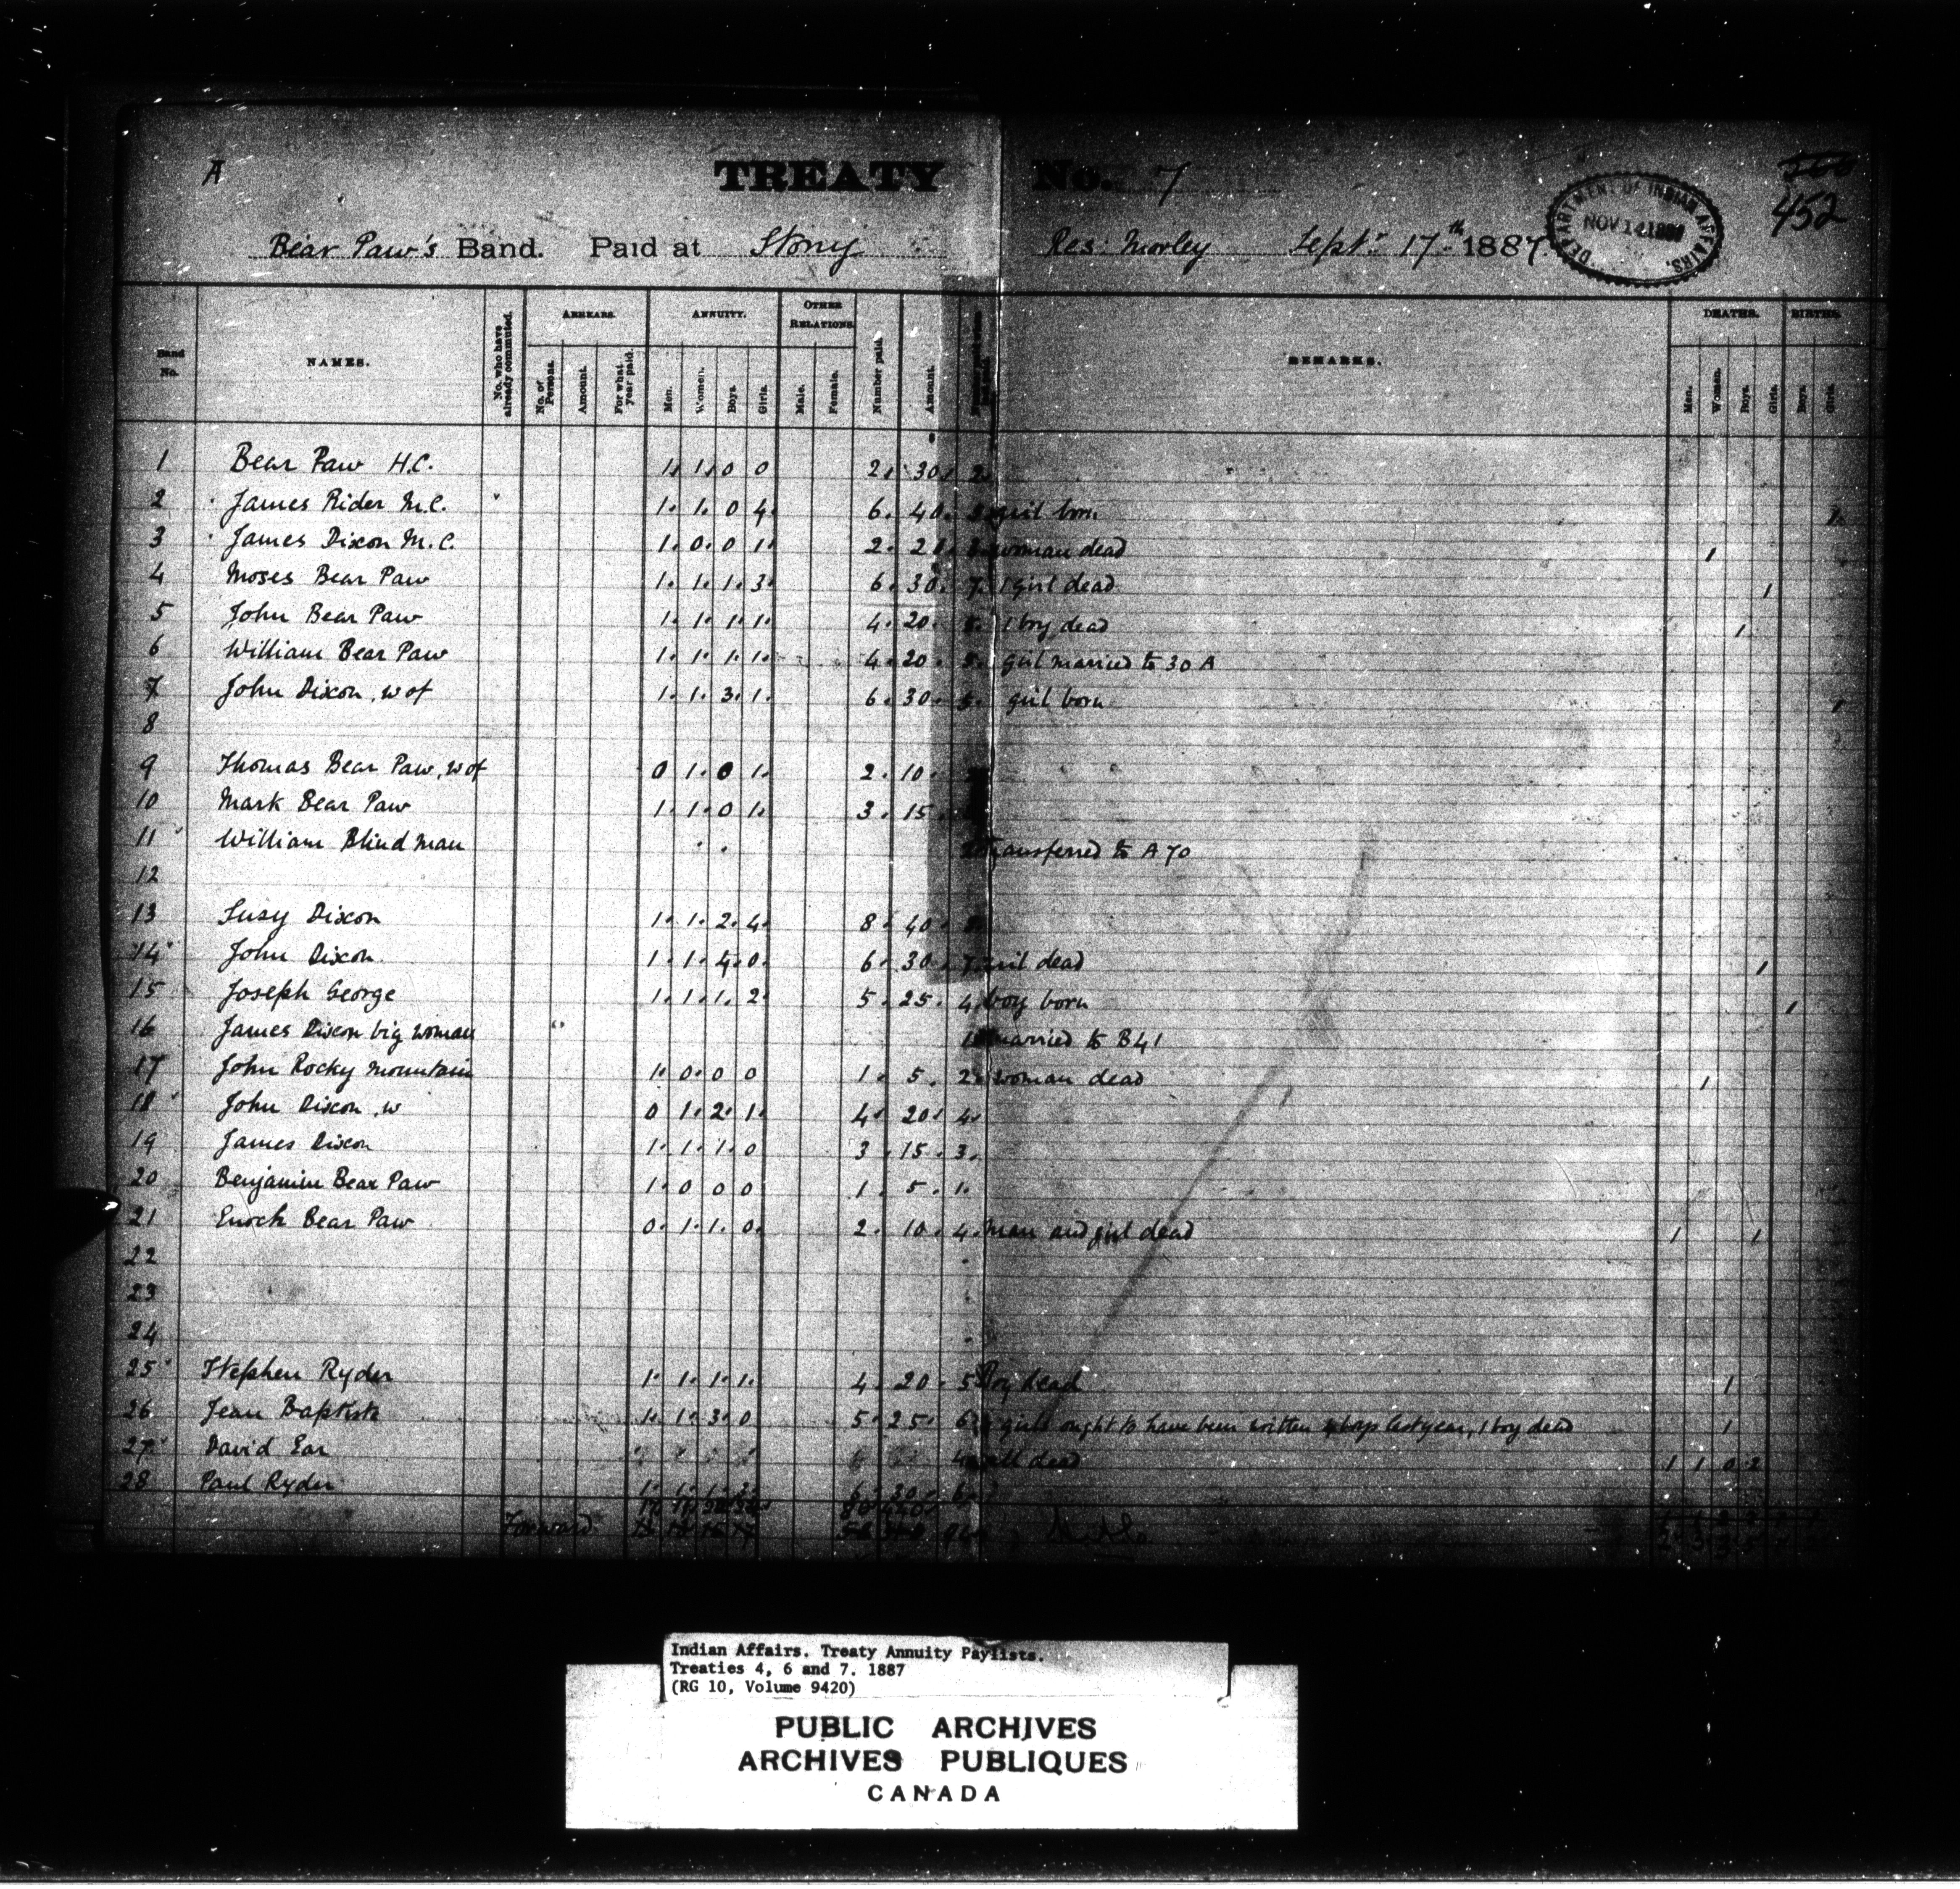 A
TREATY No. 7
452
DEPARTMENT OF INDIAN AFFAIRS.
NOV 14 1887
Bear Paw's Band. Paid at Stony Res: Morley Sept. 17th 1887.
Band No. NAMES. No. who have already commuted. ARREARS. No. of Persons. Amount. For what year paid. ANNUITY. Men. Women. Boys. Girls. OTHER RELATIONS. Male. Female. Number paid. Amount. REMARKS. DEATHS. Men. Women. Boys. Girls. BIRTHS. Boys. Girls.
1 Bear Paw H.C. 1. 1. 0 0 2. 30. 2.
2 James Rider M.C. 1. 1. 0 4. 6. 40. girl born 1.
3 James Dixon M.C. 1. 0. 0 1. 2. 20. woman dead 1
4 Moses Bear Paw 1. 1. 1. 3. 6. 30. 7. 1 girl dead 1
5 John Bear Paw 1. 1. 1. 1. 4. 20. 5. 1 boy dead 1
6 William Bear Paw 1. 1. 1. 1. 4. 20. 5. girl married to 30 A
7 John Dixon, w of 1. 1. 3. 1. 6. 30. 5. girl born 1
8
9 Thomas Bear Paw, w of 0 1. 0 1. 2. 10.
10 Mark Bear Paw 1. 1. 0 1. 3. 15
11 William Blind man Transferred to A 70
12
13 Susy Dixon 1. 1. 2. 4. 8. 40.
14 John Dixon 1. 1. 4. 0. 6. 30. 7. girl dead 1
15 Joseph George 1. 1. 1. 2. 5. 25. 4. boy born 1
16 James Dixon big woman 1 married to B41
17 John Rocky Mountain 1. 0. 0 0 1. 5. 2. woman dead 1
18 John Dixon, w 0 1. 2. 1. 4. 20. 4.
19 James Dixon 1. 1. 1. 0 3. 15. 3.
20 Benjamin Bear Paw 1. 0 0 0 1. 5. 1.
21 Enoch Bear Paw 0. 1. 1. 0. 2. 10. 4. man and girl dead 1 1
22
23
24
25 Stephen Ryder 1. 1. 1. 1. 4. 20. 5 Boy dead 1
26 Jean Baptiste 1. 1. 3. 0 5. 25. 6 girls ought to have been written boys last year, 1 boy dead 1
27 David Ear 4 all dead 1 1 0 2
28 Paul Ryder 1. 1. 1. 3. 6. 30. 6.
Forward
Indian Affairs. Treaty Annuity Paylists.
Treaties 4, 6 and 7. 1887
(RG 10, Volume 9420)
PUBLIC ARCHIVES
ARCHIVES PUBLIQUES
CANADA